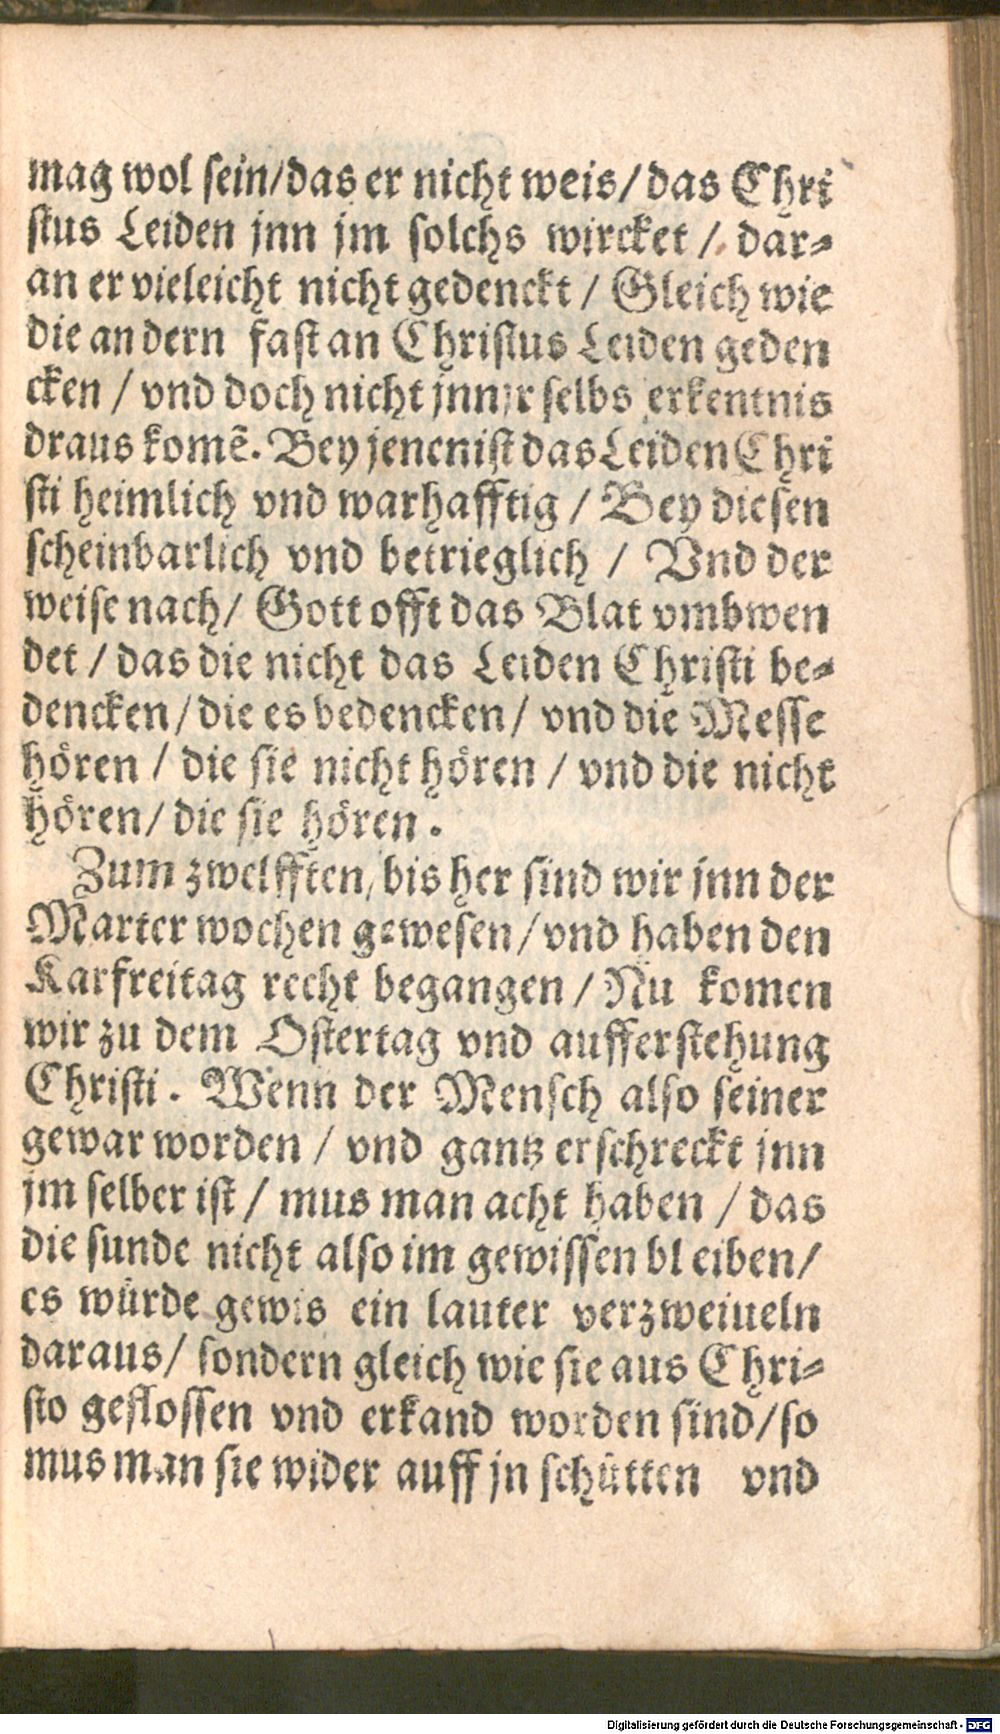 mag wol sein/das er nicht weis/ das Chri
stus Leiden jnn jm solchs wircket /. dar⸗
an er vieleicht nicht gedenckt / Gleich wie
die an dern fast an Christus Leiden geden
cken / vnd doch nicht jnn jr selbs erkentnis
draus komẽ. Bey jenen ist das Leiden Chri
sti heimlich vnd warhafftig / Bey diesen
scheinbarlich vnd betrieglich / Vnd der
weise nach/ Gott offt das Blat vmbwen
det / das die nicht das Leiden Christi be⸗
dencken/ die es bedencken/ vnd die Messe
hören / die sie nicht hören / vnd die nicht
hören/ die sie hören.
Zum zwelfften/ bis her sind wir jnn der
Marter wochen gewesen/ vnd haben den
Karfreitag recht begangen / Nu komen
wir zu dem Ostertag vnd aufferstehung
Christi. Wenn der Mensch also seiner
gewar worden / vnd gantz erschreckt jnn
jm selber ist / mus man acht haben / das
die sunde nicht also im gewissen bl eiben/
es würde gewis ein lauter verzweiueln
daraus/ sondern gleich wie sie aus Chri⸗
sto geflossen vnd erkand worden sind/ so
mus man sie wider auff jn schütten vnd
Digitalisierung gefördert durch die Deutsche Forschungsgemeinschaft - DFG